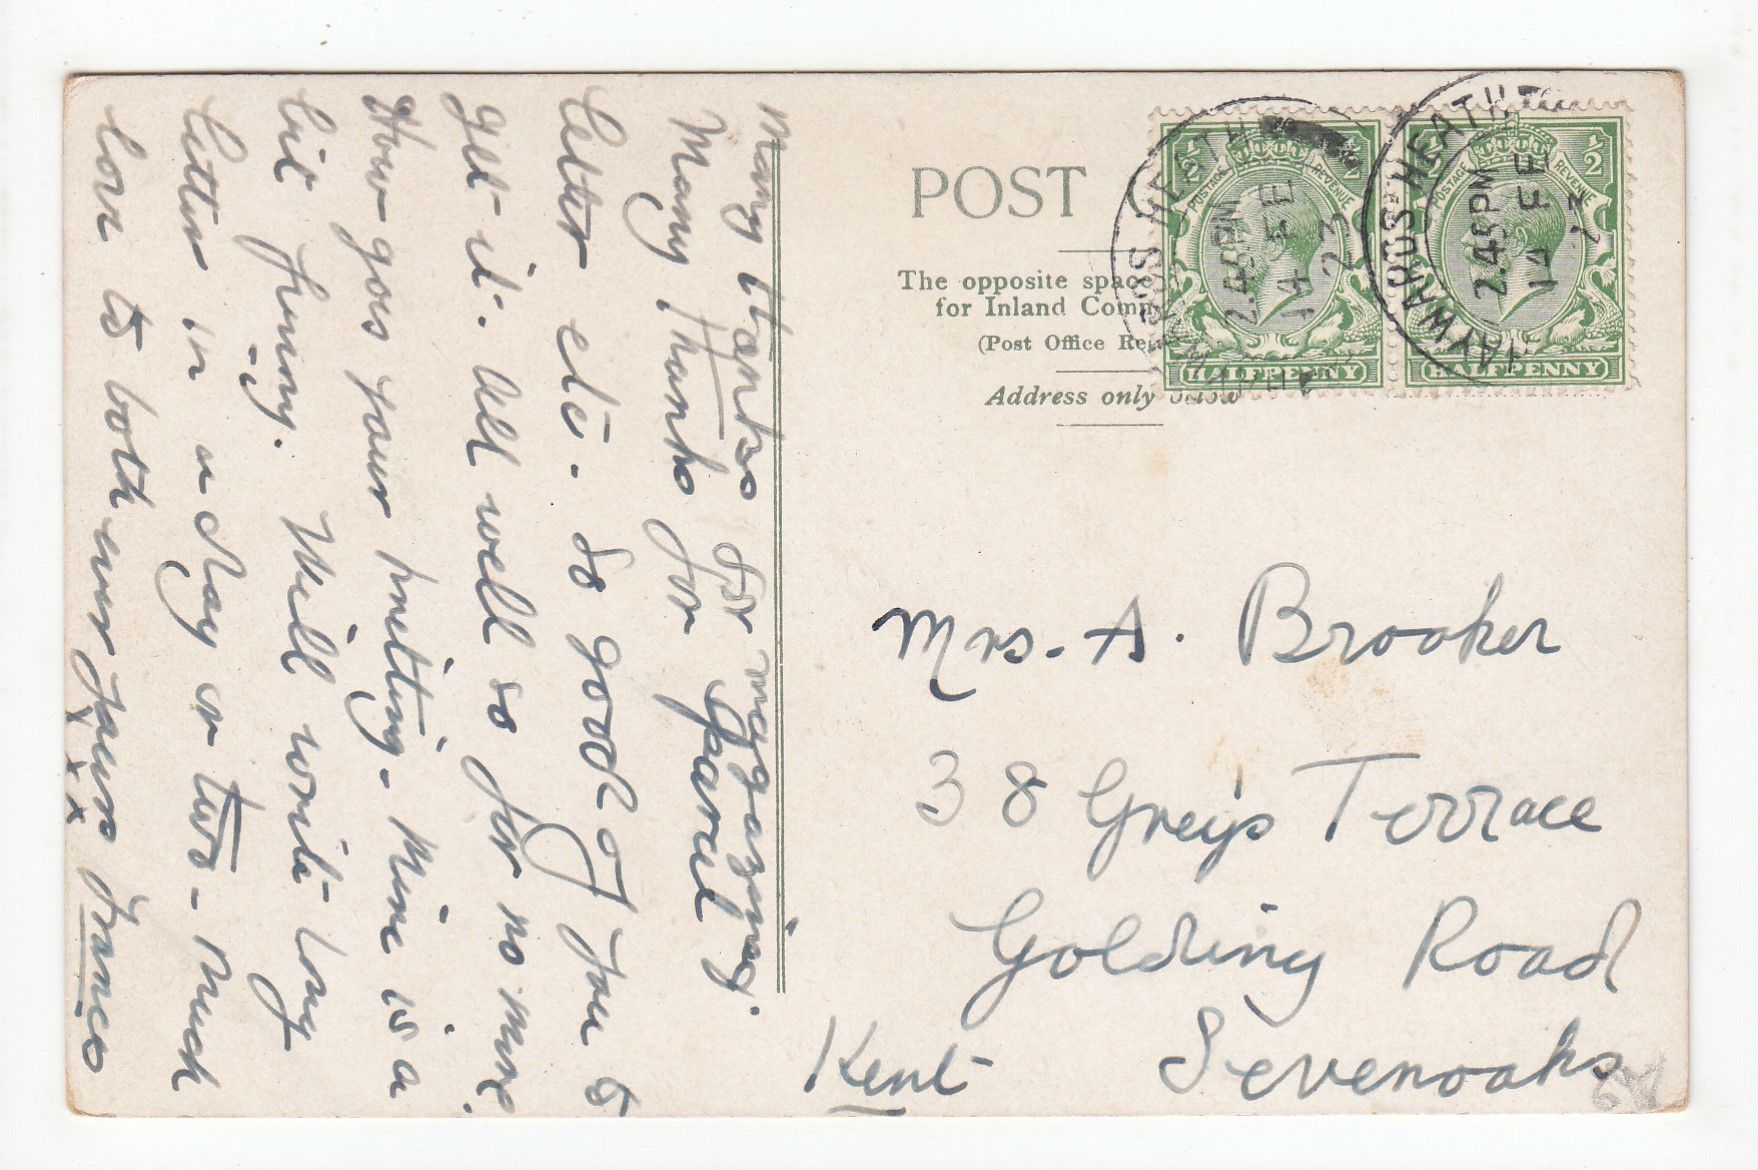 many thanks for magazines.
Many Thanks for Parcel
letter etc. So good of you to
get it. All well so far no more.
How goes your knitting. Mine is a
bit funny. Will write long
letter in a day or two - Much
love to both ever yours Frances
x x x
POST
The opposite space
for Inland Comm
(Post Office Re
Address only below
HAYWARDS HEATH
2.45PM
14 FE
23
HAYWARDS HEATH
2.45PM
14 FE
23
½ ½
POSTAGE REVENUE
HALFPENNY
½ ½
POSTAGE REVENUE
HALFPENNY
Mrs. A. Brooker
38 Grey's Terrace
Golding Road
Sevenoaks
Kent